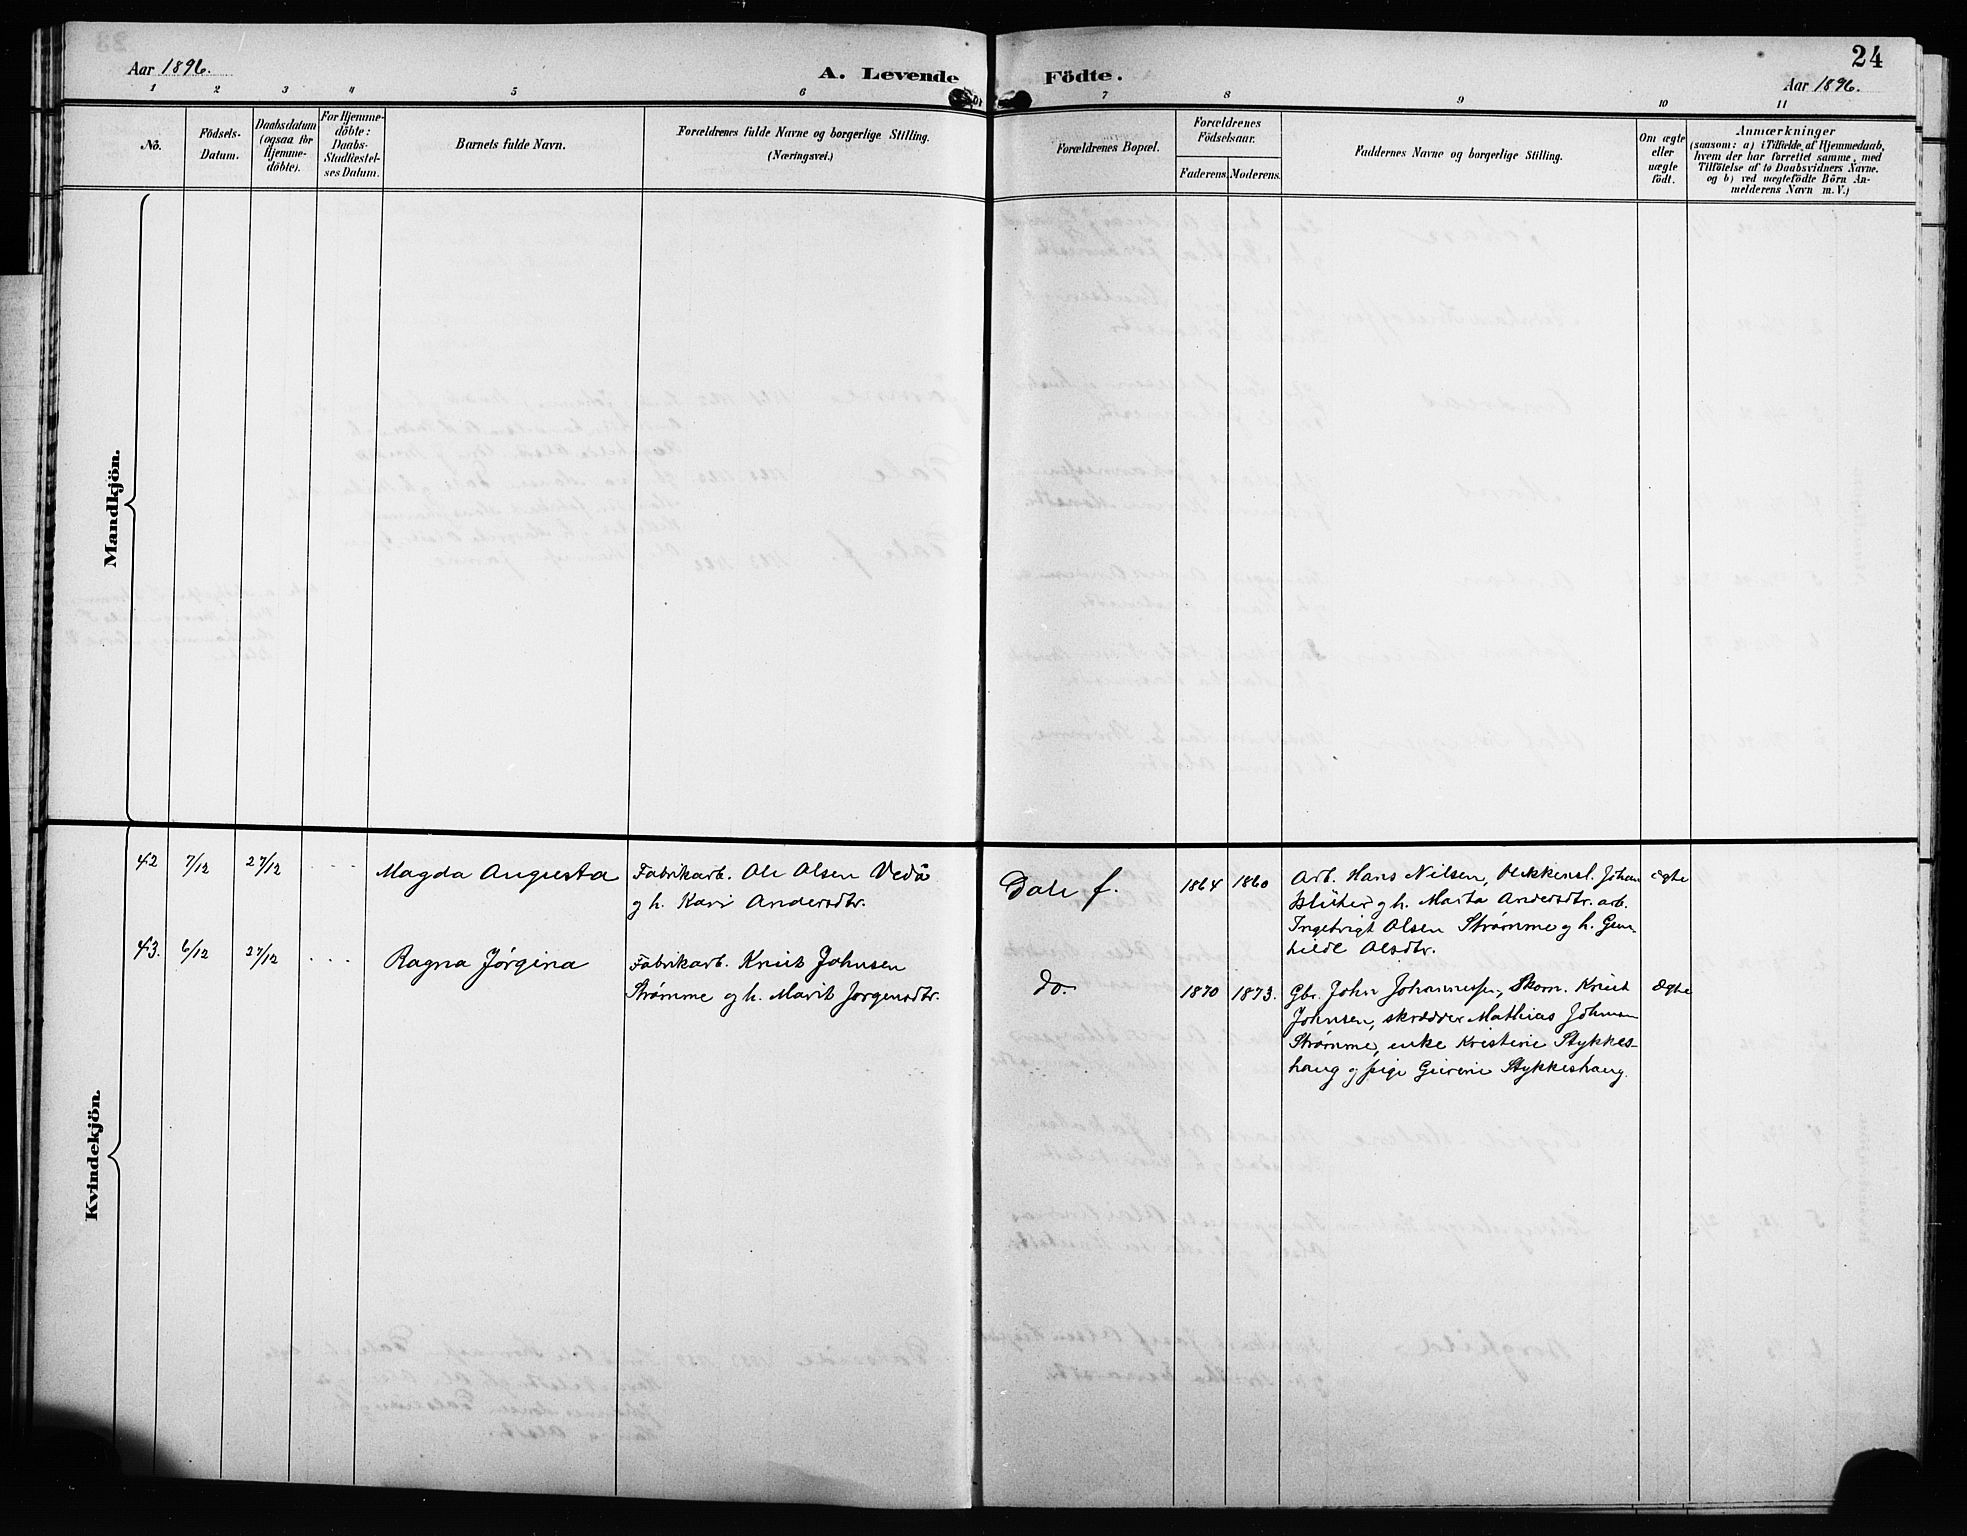 24
Aar 1896.
A. Levende Födte.
Aar 1896.
1 2 3 4 5 6 7 8 9 10 11
No.
Födsels-
Datum.
Daabsdatum
(ogsaa for
Hjemme-
döbte).
For Hjemme-
döbte:
Daabs-
Stadfæstel-
ses Datum.
Barnets fulde Navn.
Forældrenes fulde Navne og borgerlige Stilling.
(Næringsvei.)
Forældrenes Bopæl.
Forældrenes
Födselsaar.
Faderens. Moderens.
Faddernes Navne og borgerlige Stilling.
Om ægte
eller
uægte
födt.
Anmærkninger
(saasom: a) i Tilfælde af Hjemmedaab,
hvem der har forrettet samme, med
Tilföielse af to Daabsvidners Navne.
og b) ved uægtefödte Börn An-
melderens Navn m. V.)
Mandkjön.
Kvindekjön.
42 7/12 27/12 . . . Magda Augusta
Fabrikarb. Ole Olsen Vedå
g h. Kari Andersdtr.
Dale f. 1864 1860
Arb. Hans Nilsen, Johan
g h. Marta Andersdtr. arb.
Ingebrigt Olsen Strømme g h. Gun-
hilde Olsdtr.
ægte
43. 6/12 27/12 . . . Ragna Jørgina
Fabrikarb. Knut Johnsen
Strømme g h. Marit Jørgensdtr.
do. 1870 1873.
Gbr. John Johannessen, Skom. Knut
Johnsen, skrædder Mathias Johnsen
Strømme, enke Kristine Stykkes-
haug g pige Gurine Stykkeshaug.
Ægte